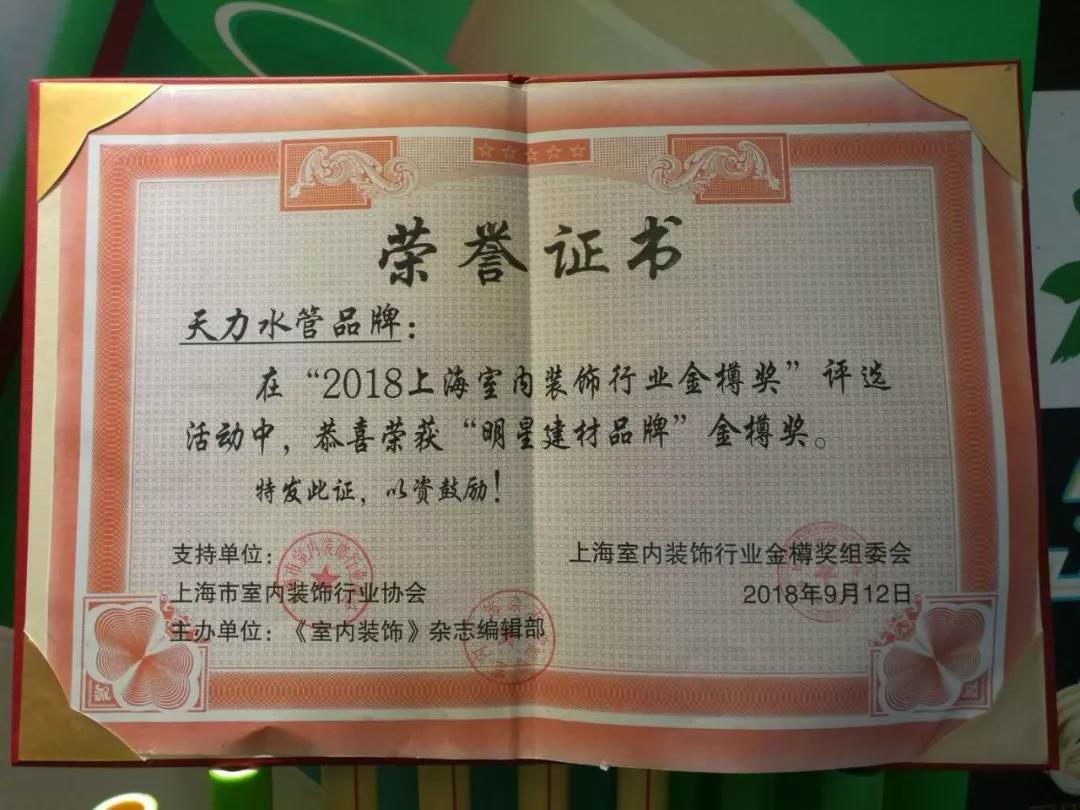 荣誉证书
天力水管品牌：
在“2018上海室内装饰行业金樽奖”评选
活动中，恭喜荣获“明星建材品牌”金樽奖。
特发此证，以资鼓励！
支持单位：
上海市室内装饰行业协会
主办单位：《室内装饰》杂志编辑部
上海室内装饰行业金樽奖组委会
2018年9月12日